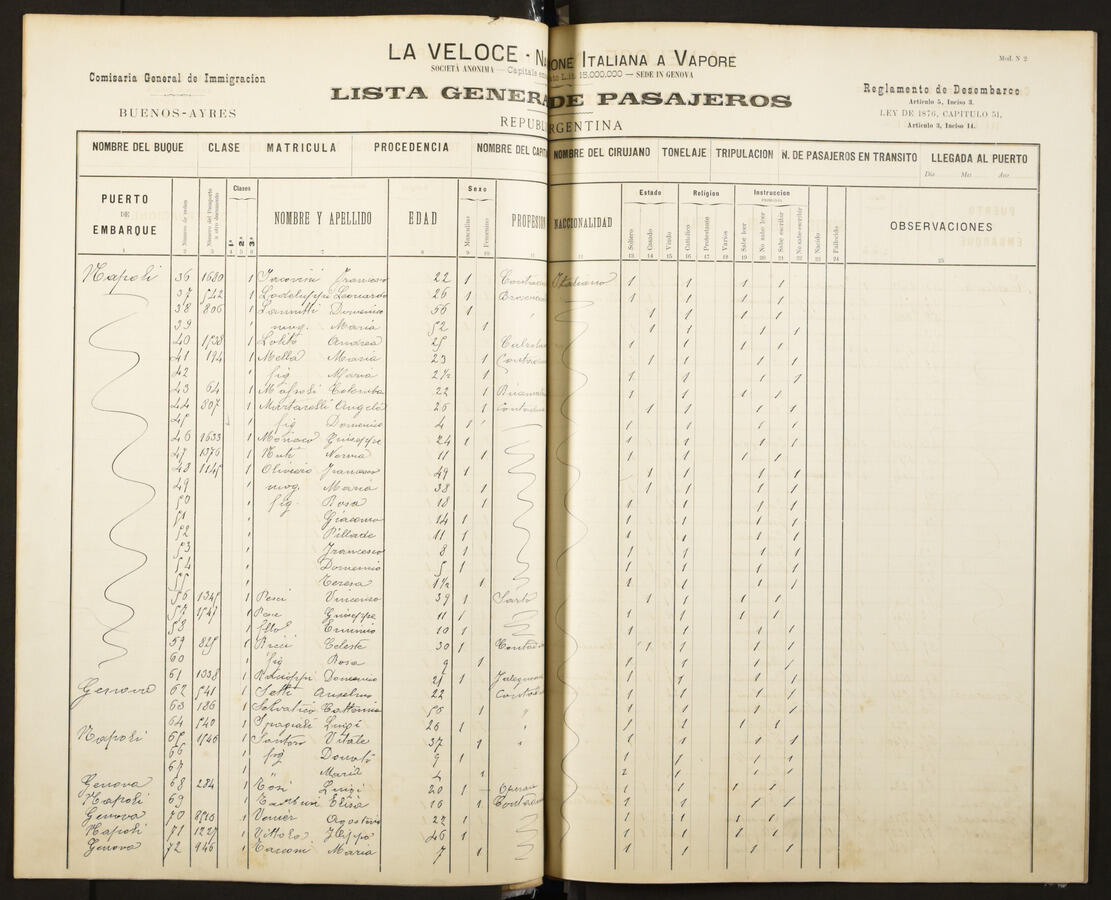 LA VELOCE - NA
IONE ITALIANA A VAPORE
Mod. N 2
SOCIETÀ ANONIMA — Capitale
L.it. 15,000,000 — SEDE IN GENOVA
Comisaria General de Immigracion
LISTA GENERA
DE PASAJEROS
Reglamento de Desembarco
Articulo 5, Inciso 3.
BUENOS-AYRES
REPUBL
RGENTINA
LEY DE 1876, CAPITULO 51,
Articulo 3, Inciso 14.
NOMBRE DEL BUQUE CLASE MATRICULA PROCEDENCIA NOMBRE DEL CAPIT
NOMBRE DEL CIRUJANO TONELAJE TRIPULACION N. DE PASAJEROS EN TRANSITO LLEGADA AL PUERTO
Dia Mes Ano
PUERTO DE EMBARQUE Número de orden Número del Pasaporte u otro documento Clases 1ª 2ª 3ª NOMBRE Y APELLIDO EDAD Sexo Masculino Femenino PROFESION
NACCIONALIDAD Estado Soltero Casado Viudo Religion Catolico Protestante Varios Instruccion Sabe leer No sabe leer Sabe escribir No sabe escribir Nacido Fallecido OBSERVACIONES
1 2 3 4 5 6 7 8 9 10 11 12 13 14 15 16 17 18 19 20 21 22 23 24 25
Napoli 36 1680 1 Francesco 22 1 Italiano 1 1 1 1
37 542 1 Leonardo 26 1 1 1 1 1
38 806 1 Iannitti Domenico 56 1 1 1 1 1
39 1 mog. Maria 52 1 1 1 1 1
40 1538 1 Lolito Andrea 25 1 1 1 1
41 194 1 Mella Maria 23 1 1 1 1 1
42 1 fig Maria 2½ 1 1 1 1 1
43 64 1 Colomba 22 1 1 1 1 1
44 807 1 Martarelli Angela 26 1 1 1 1 1
45 1 fig Domenico 4 1 1 1 1 1
46 1633 1 Monaco Giuseppe 24 1 1 1 1 1
47 1376 1 11 1 1 1 1 1
48 1145 1 Oliviero Francesco 49 1 1 1 1 1
49 1 mog. Maria 38 1 1 1 1 1
50 1 fig. Rosa 18 1 1 1 1 1
51 1 Giacomo 14 1 1 1 1 1
52 1 11 1 1 1 1 1
53 1 Francesco 8 1 1 1 1 1
54 1 Domenico 5 1 1 1 1 1
55 1 Teresa 1½ 1 1 1 1 1
56 1 Pesci Vincenzo 39 1 Sarto 1 1 1 1
57 1 Giuseppe 11 1 1 1 1 1
58 1 Erminio 10 1 1 1 1 1
59 825 1 Ricci Celeste 30 1 1 1 1 1
60 1 fig Rosa 9 1 1 1 1 1
61 1338 1 Domenico 21 1 1 1 1 1
Genova 62 541 1 Setti Anselmo 22 1 1 1 1
63 186 1 Selvatico 56 1 " 1 1 1 1
64 540 1 Luigi 26 1 " 1 1 1 1
Napoli 65 1546 1 Santoro Vitale 37 1 " 1 1 1 1
66 1 fig Donato 9 1 1 1 1 1
67 1 " Maria 4 1 2 1 1 1
Genova 68 284 1 Tosi Luigi 20 1 1 1 1 1
Napoli 69 1 Elisa 16 1 1 1 1 1
Genova 70 1 Venier Agostino 22 1 1 1 1 1
Napoli 71 1227 1 46 1 1 1 1 1
Genova 72 946 1 Tacconi Maria 7 1 1 1 1 1